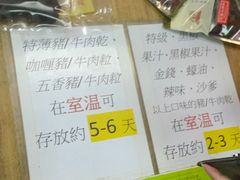 特薄豬/牛肉乾、
咖喱豬/牛肉粒、
五香豬/牛肉粒
在室溫可
存放約 5-6 天
特級、黑椒
果汁、黑椒果汁、
金錢、蠔油、
辣味、沙爹
以上口味的豬/牛肉乾
在室溫可
存放約 2-3 天